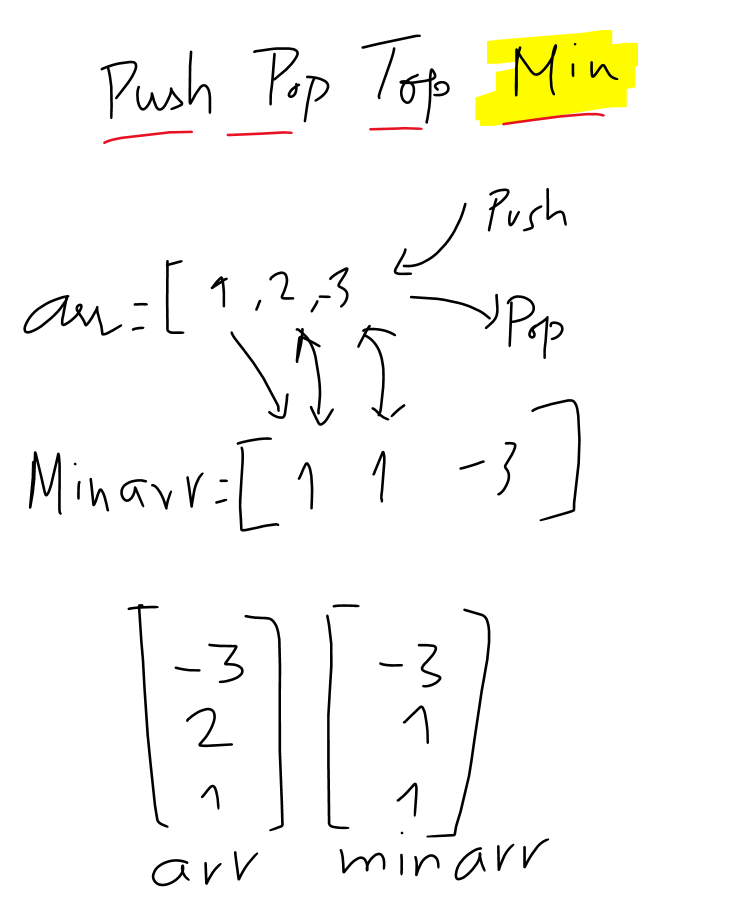 Push Pop Top Min
Push
arr=[ 1,2,-3
Pop
Minarr=[ 1 1 -3 ]
-3 -3
2 1
1 1
arr minarr